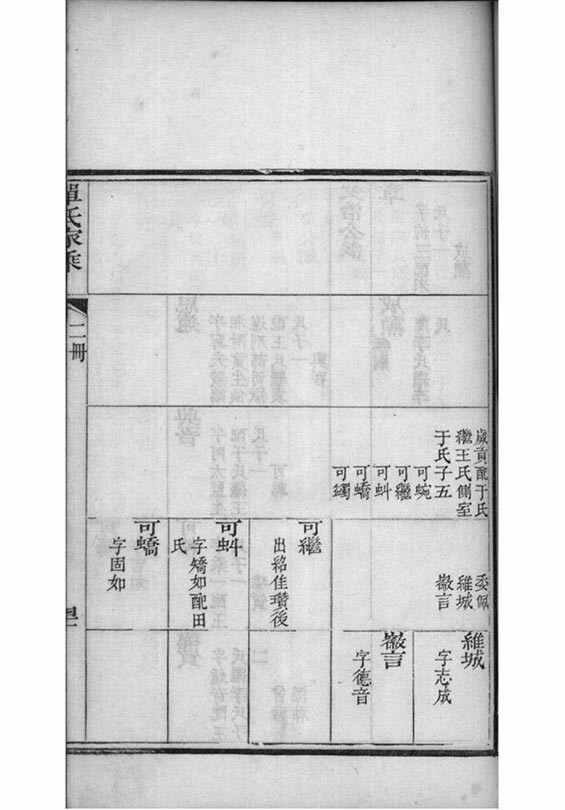 歲貢配于氏
繼王氏側室
于氏子五
可蜿
可繼
可蚪
可蟜
可蠲
委佩
維城
徽言
維城
字志成
徽言
字德音
可繼
出紹佳瓚後
可蚪
字矯如配田
氏
可蟜
字固如
單氏家乘
二冊